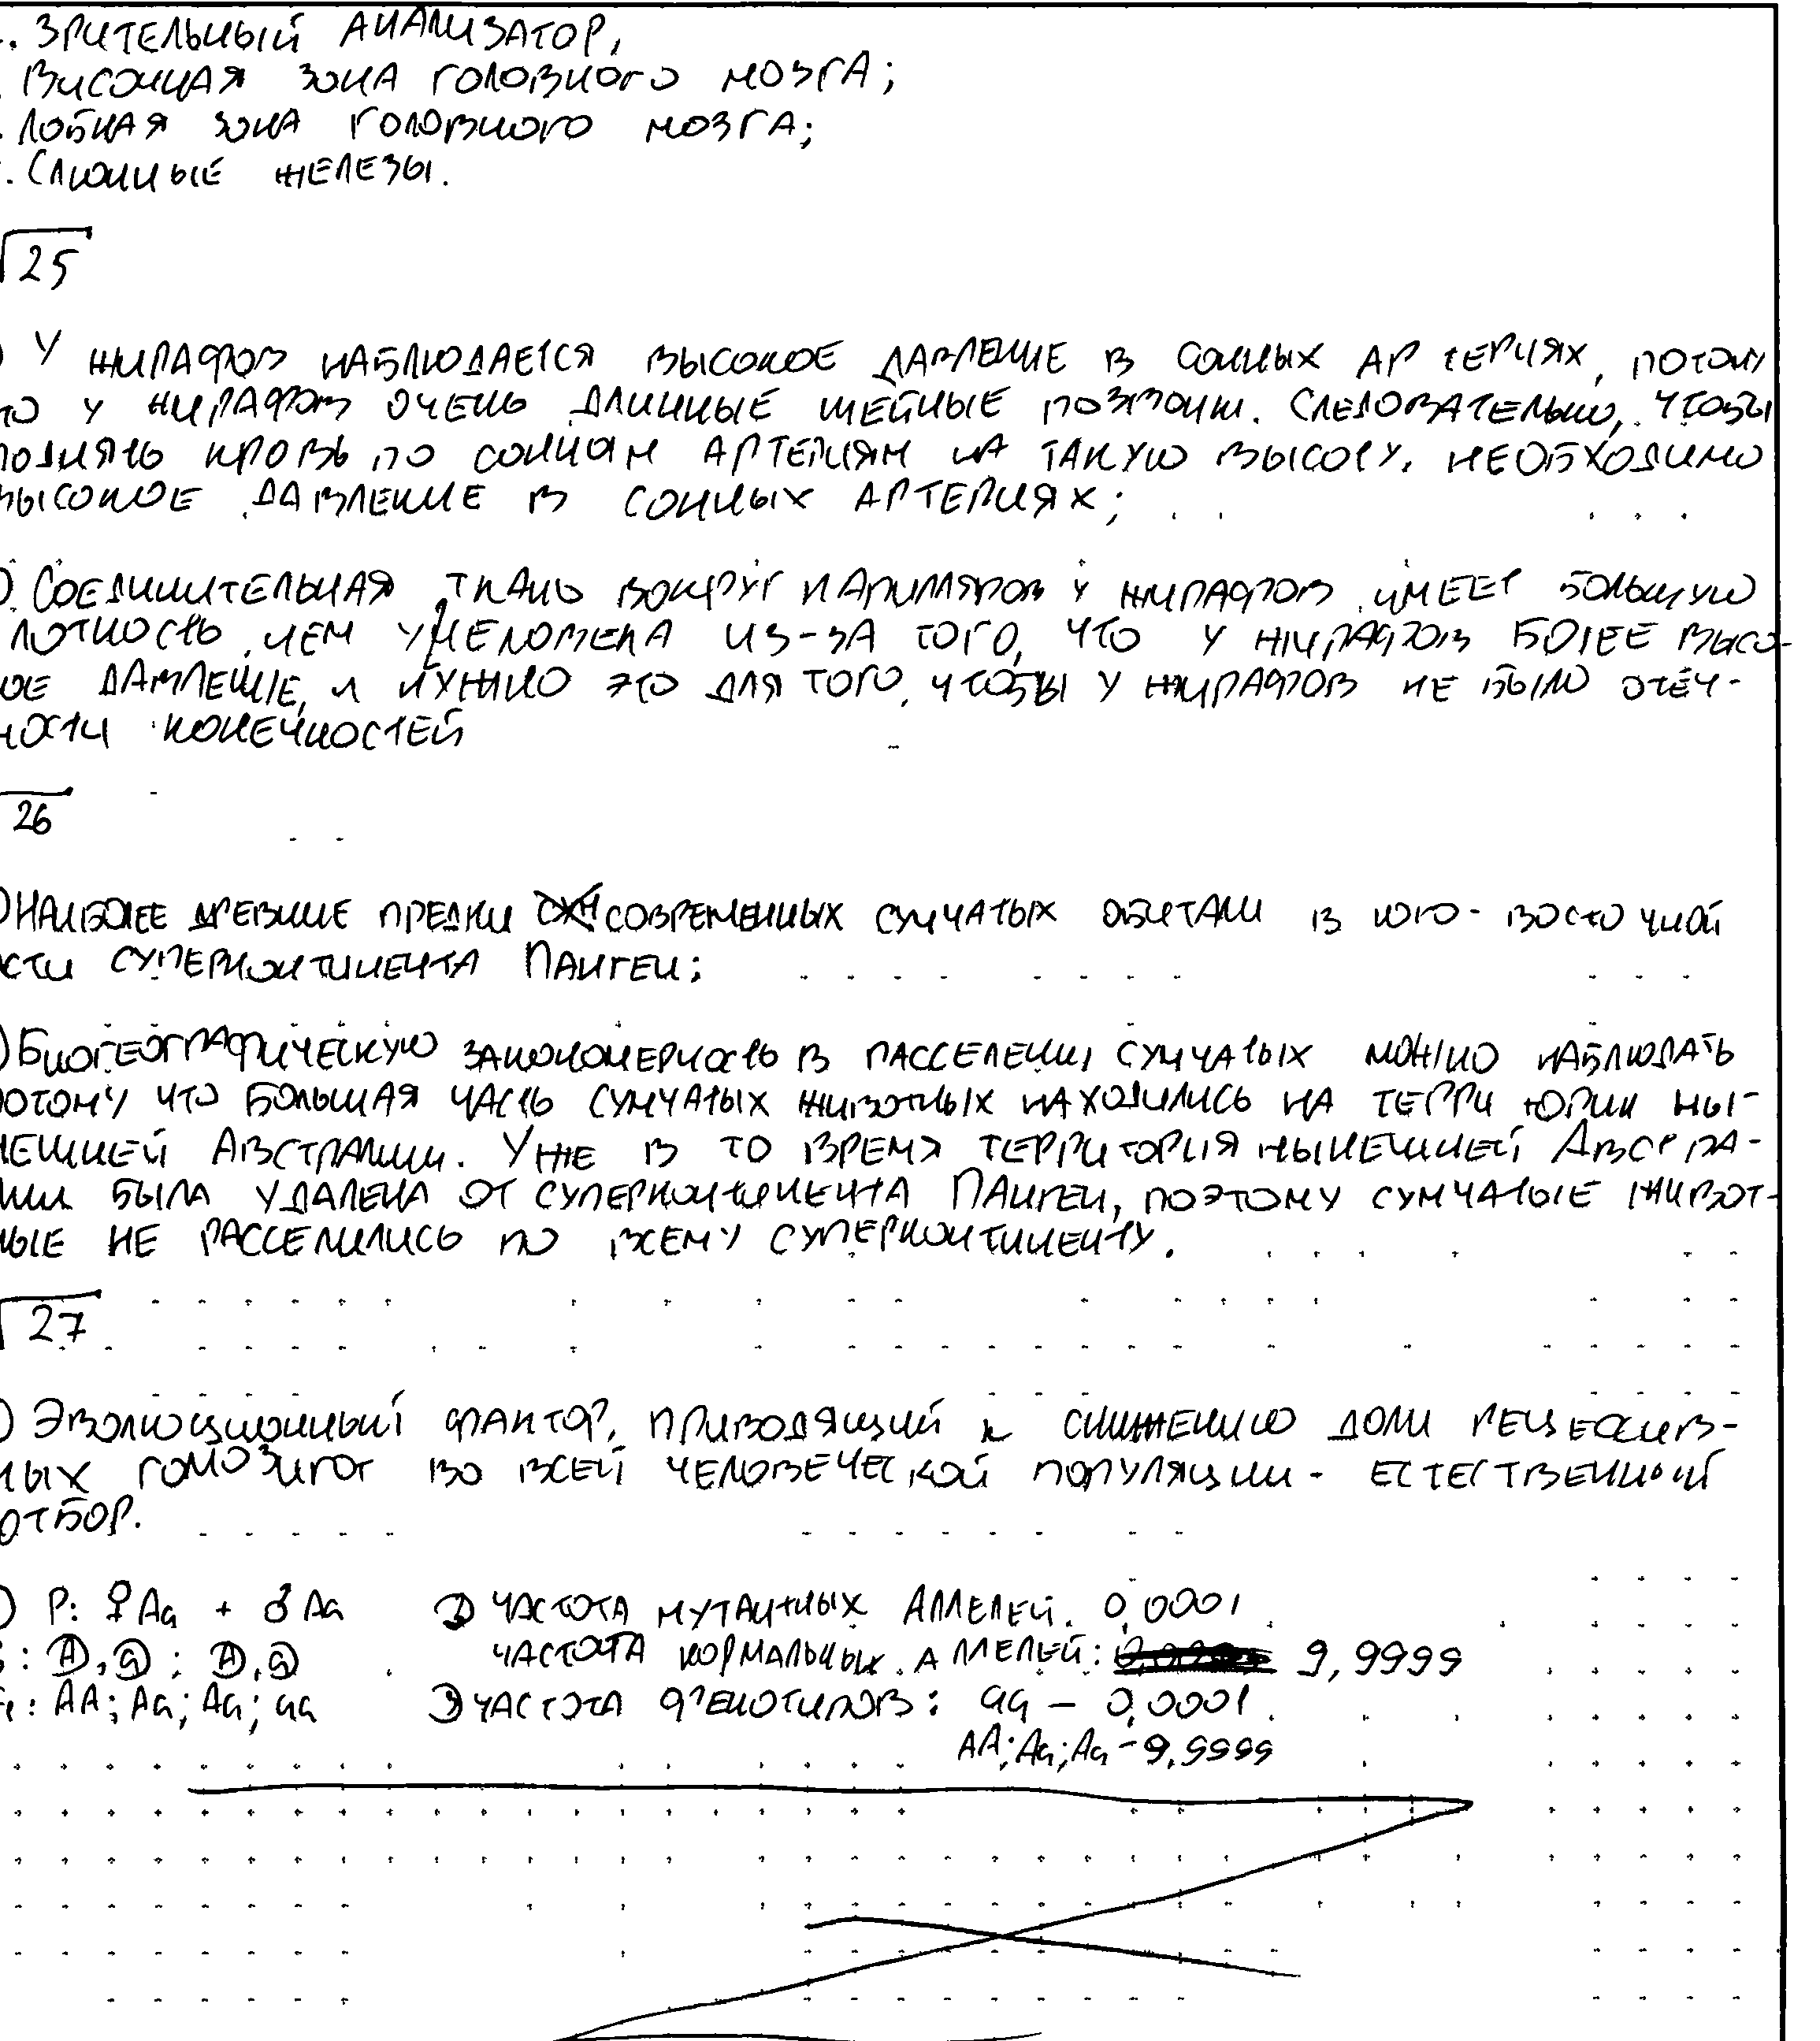 . ЗРИТЕЛЬНЫЙ АНАЛИЗАТОР,
ВИСОЧНАЯ ЗОНА ГОЛОВНОГО МОЗГА;
. ЛОБНАЯ ЗОНА ГОЛОВНОГО МОЗГА;
. СЛЮННЫЕ ЖЕЛЕЗЫ.
25
) У ЖИРАФОВ НАБЛЮДАЕТСЯ ВЫСОКОЕ ДАВЛЕНИЕ В СОННЫХ АРТЕРИЯХ, ПОТОМУ
ТО У ЖИРАФОВ ОЧЕНЬ ДЛИННЫЕ ШЕЙНЫЕ ПОЗВОНКИ. СЛЕДОВАТЕЛЬНО, ЧТОБЫ
ПОДНЯТЬ КРОВЬ ПО СОННЫМ АРТЕРИЯМ НА ТАКУЮ ВЫСОТУ, НЕОБХОДИМО
ВЫСОКОЕ ДАВЛЕНИЕ В СОННЫХ АРТЕРИЯХ;
). СОЕДИНИТЕЛЬНАЯ ТКАНЬ ВОКРУГ КАПИЛЛЯРОВ У ЖИРАФОВ ИМЕЕТ БОЛЬШУЮ
ЛОТНОСТЬ, ЧЕМ У ЧЕЛОВЕКА ИЗ-ЗА ТОГО, ЧТО У ЖИРАФОВ БОЛЕЕ ВЫСО-
ОЕ ДАВЛЕНИЕ, И НУЖНО ЭТО ДЛЯ ТОГО, ЧТОБЫ У ЖИРАФОВ НЕ БЫЛО ОТЁЧ-
НОСТИ КОНЕЧНОСТЕЙ
26
) НАИБОЛЕЕ ДРЕВНИЕ ПРЕДКИ СОВРЕМЕННЫХ СУМЧАТЫХ ОБИТАЛИ В ЮГО-ВОСТОЧНОЙ
СТИ СУПЕРКОНТИНЕНТА ПАНГЕИ;
) БИОГЕОГРАФИЧЕСКУЮ ЗАКОНОМЕРНОСТЬ В РАССЕЛЕНИИ СУМЧАТЫХ МОЖНО НАБЛЮДАТЬ
ПОТОМУ ЧТО БОЛЬШАЯ ЧАСТЬ СУМЧАТЫХ ЖИВОТНЫХ НАХОДИЛИСЬ НА ТЕРРИТОРИИ НЫ-
НЕШНЕЙ АВСТРАЛИИ. УЖЕ В ТО ВРЕМЯ ТЕРРИТОРИЯ НЫНЕШНЕЙ АВСТРА-
ЛИИ БЫЛА УДАЛЕНА ОТ СУПЕРКОНТИНЕНТА ПАНГЕИ, ПОЭТОМУ СУМЧАТЫЕ ЖИВОТ-
НЫЕ НЕ РАССЕЛИЛИСЬ ПО ВСЕМУ СУПЕРКОНТИНЕНТУ.
27
) ЭВОЛЮЦИОННЫЙ ФАКТОР, ПРИВОДЯЩИЙ К СНИЖЕНИЮ ДОЛИ РЕЦЕССИВ-
НЫХ ГОМОЗИГОТ ВО ВСЕЙ ЧЕЛОВЕЧЕСКОЙ ПОПУЛЯЦИИ - ЕСТЕСТВЕННЫЙ
ОТБОР.
) P: ♀Aa + ♂Aa 2) ЧАСТОТА МУТАНТНЫХ АЛЛЕЛЕЙ. 0,0001
: A, a ; A, a ЧАСТОТА НОРМАЛЬНЫХ АЛЛЕЛЕЙ: 9,9999
: AA; Aa; Aa; aa 3) ЧАСТОТА ФЕНОТИПОВ: aa - 0,0001
AA; Aa; Aa - 9,9999